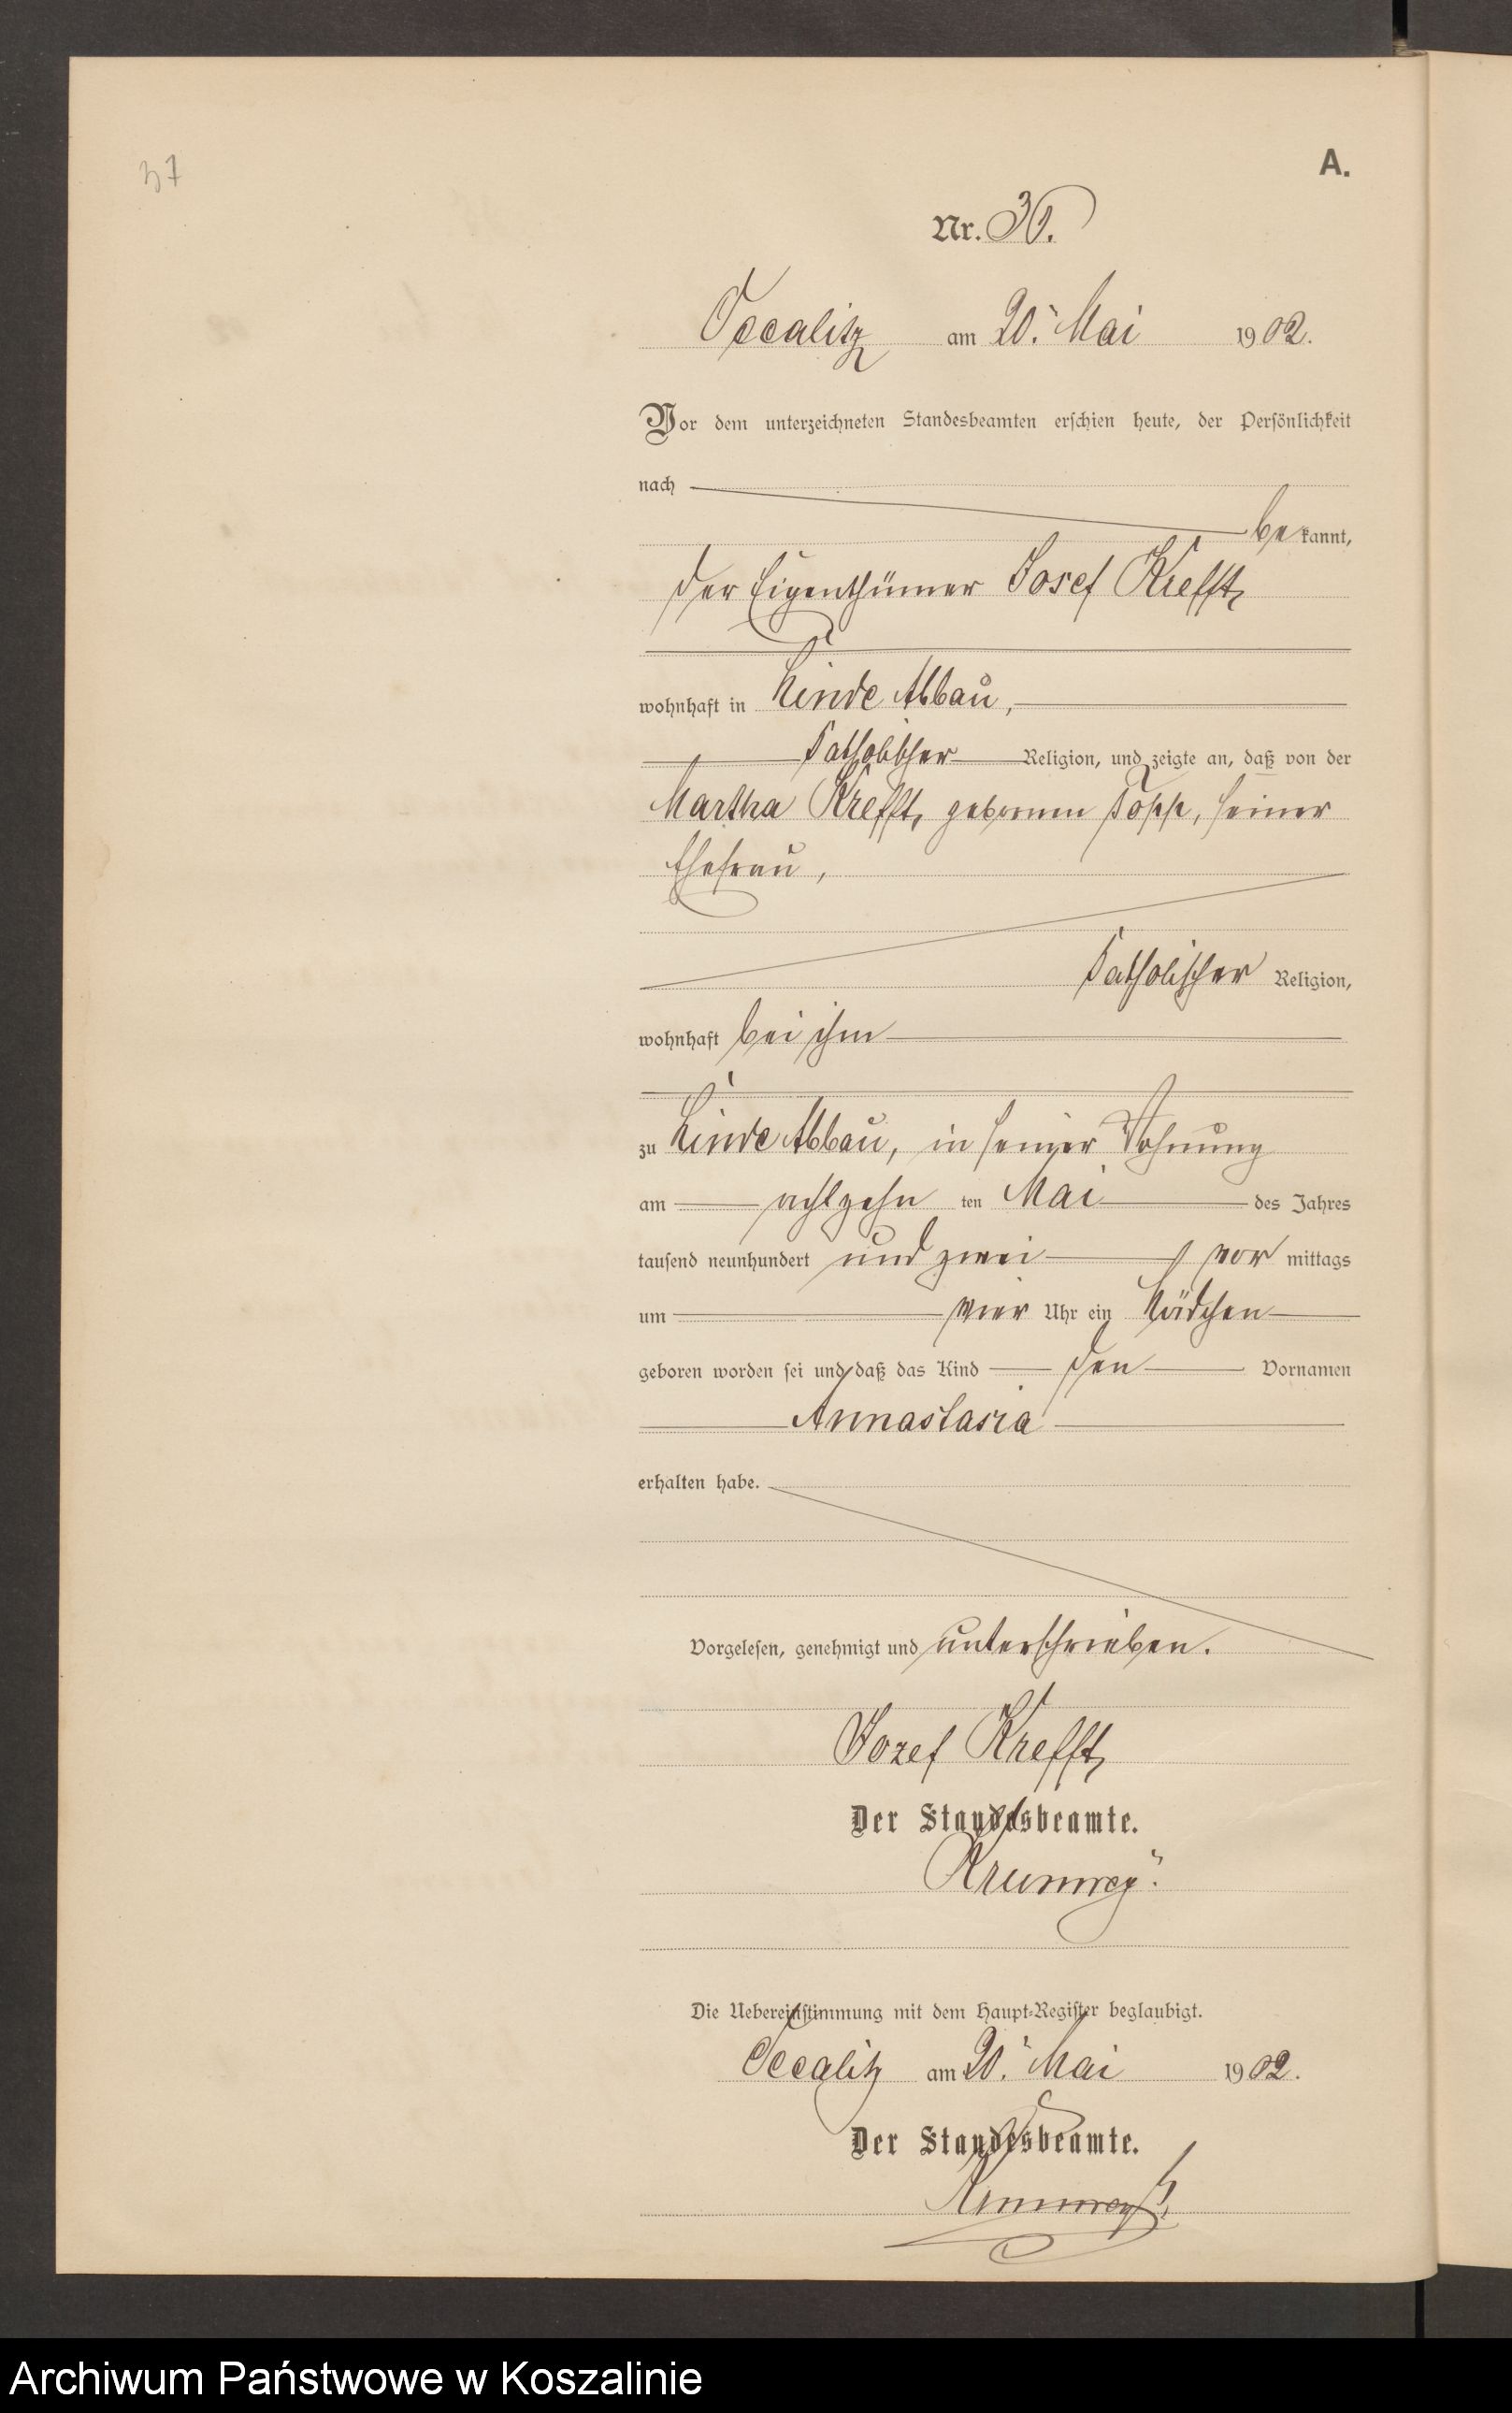 37
A.
Nr. 30.
Occalitz am 20. Mai 1902.
Vor dem unterzeichneten Standesbeamten erschien heute, der Persönlichkeit
nach
be kannt,
der Eigenthümer Josef Krefft,
wohnhaft in Linde Abbau,
katholischer Religion, und zeigte an, daß von der
Martha Krefft, geborenen Topp, seiner
Ehefrau,
katholischer Religion,
wohnhaft bei ihm
zu Linde Abbau, in seiner Wohnung
am achtzehn ten Mai des Jahres
tausend neunhundert und zwei vor mittags
um vier Uhr ein Mädchen
geboren worden sei und daß das Kind den Vornamen
Annastasia
erhalten habe.
Vorgelesen, genehmigt und unterschrieben.
Jozef Krefft,
Der Standesbeamte.
Die Uebereinstimmung mit dem Haupt-Register beglaubigt.
Occalitz am 20. Mai 1902.
Der Standesbeamte.
Archiwum Państwowe w Koszalinie